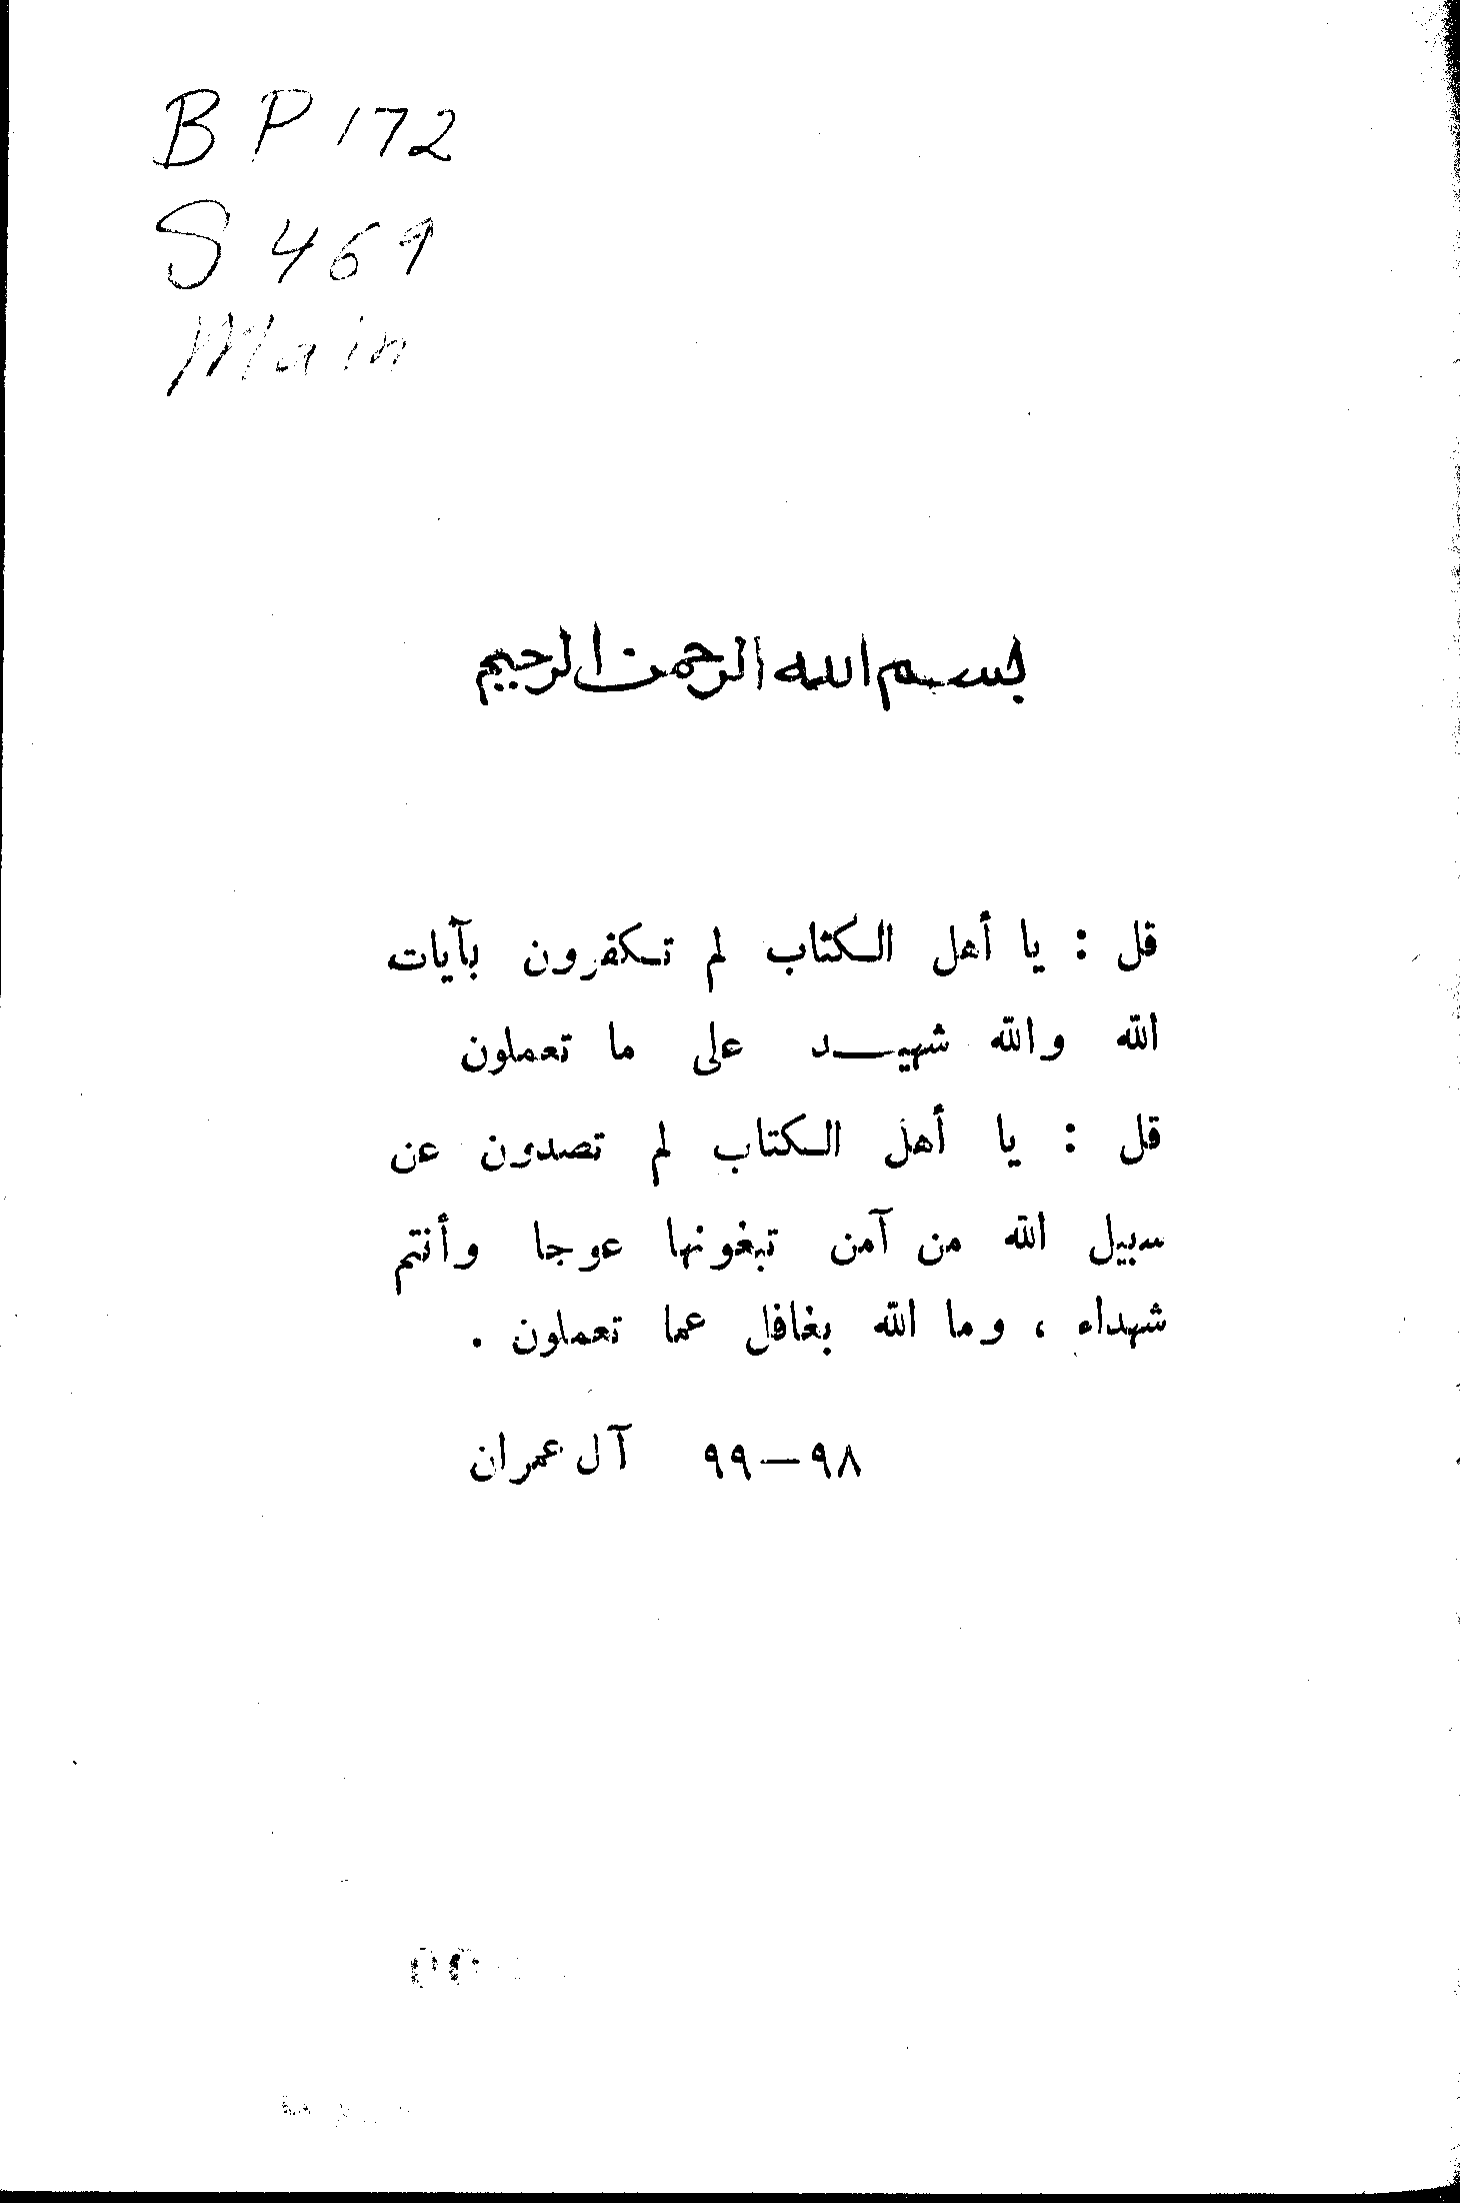 BP172
S469
Main
بسم الله الرحمن الرحيم
قل : يا أهل الكتاب لم تكفرون بآيات
الله والله شهيد على ما تعملون
قل : يا أهل الكتاب لم تصدون عن
سبيل الله من آمن تبغونها عوجا وأنتم
شهداء ، وما الله بغافل عما تعملون .
٩٨ — ٩٩ آل عمران